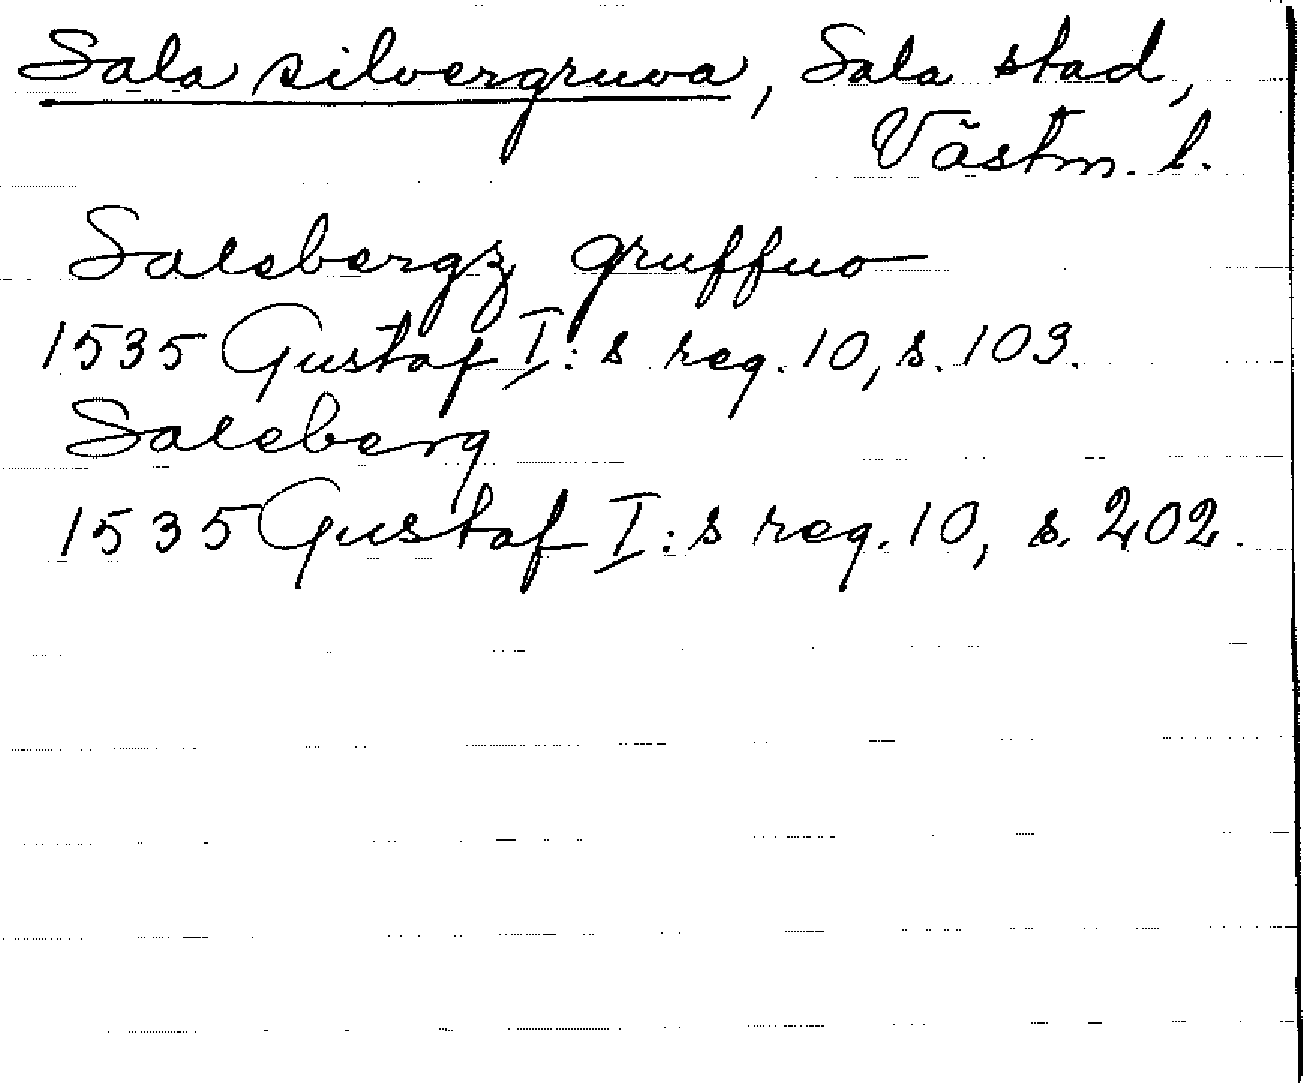 Sala silvergruva, Sala stad,
Västm. l.
Salebergz gruffuo
1535 Gustaf I:s reg. 10, s. 103.
Saleberg
1535 Gustaf I:s reg. 10, s. 202.